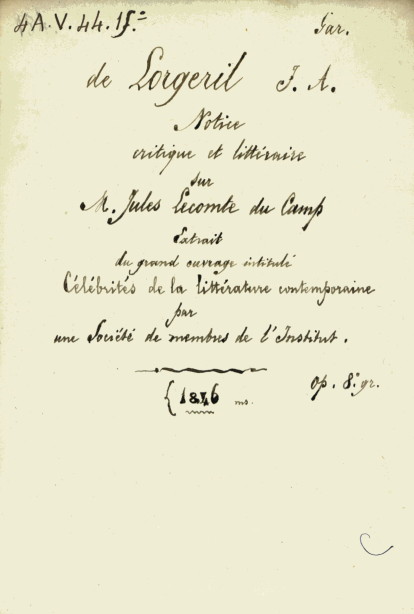 4 A. V. 44. 1f.º
Far.
de Lorgeril J. A.
Notice
critique et littéraire
sur
M. Jules Lecomte du Camp
Extrait
du grand ouvrage intitulé
Célébrités de la littérature contemporaine
par
une Société de membres de l'Institut.
{ 1846 ms.
Op. 8.º gr.